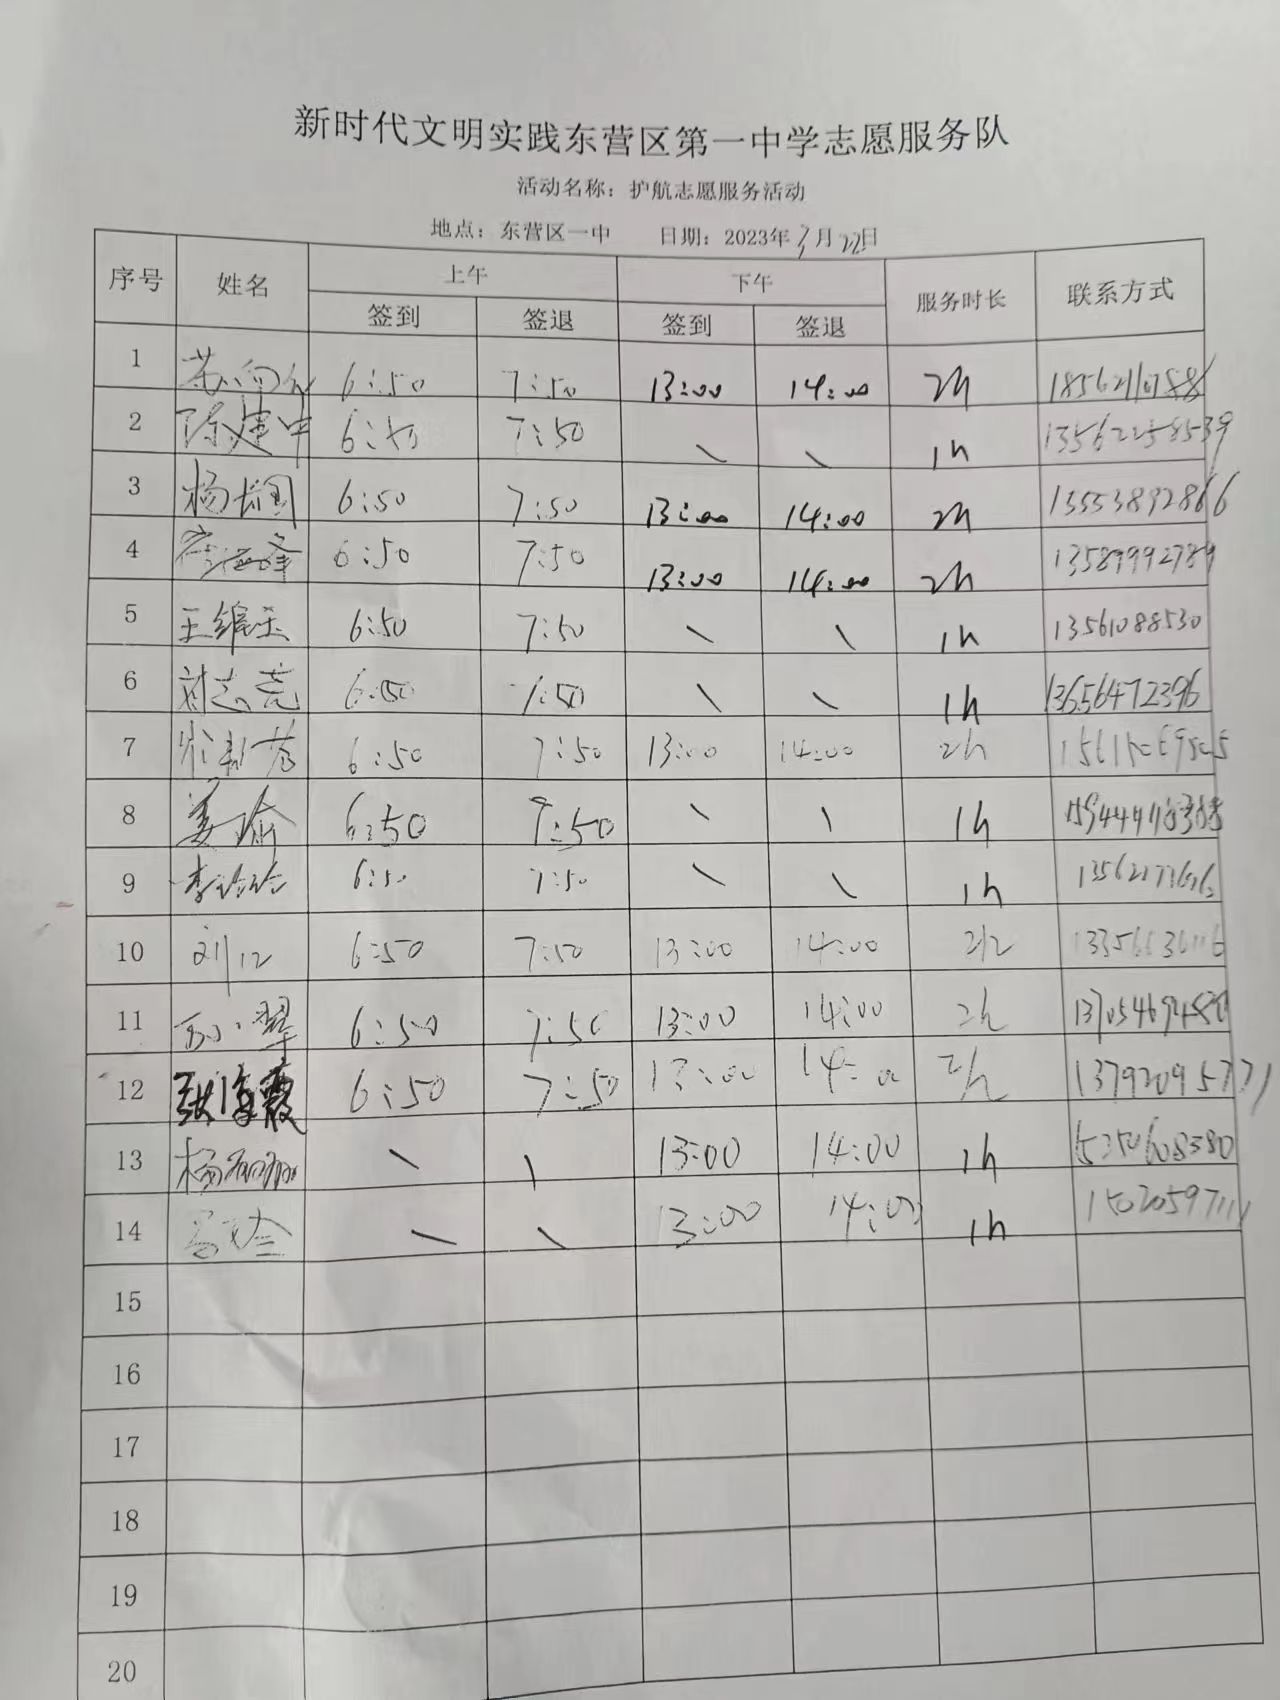 新时代文明实践东营区第一中学志愿服务队
活动名称：护航志愿服务活动
地点：东营区一中 日期：2023年3月22日
序号 姓名 上午 下午 服务时长 联系方式
签到 签退 签到 签退
1 6:50 7:50 13:00 14:00 2h
2 陈建中 6:50 7:50 \ \ 1h 13562258539
3 6:50 7:50 13:00 14:00 2h 13553892866
4 6:50 7:50 13:00 14:00 2h 13589992789
5 6:50 7:50 \ \ 1h 13561088530
6 刘志亮 6:50 7:50 \ \ 1h 13656472396
7 6:50 7:50 13:00 14:00 2h
8 姜瑜 6:50 7:50 \ \ 1h
9 李玲玲 6:50 7:50 \ \ 1h
10 6:50 7:50 13:00 14:00 2h
11 6:50 7:50 13:00 14:00 2h
12 张海霞 6:50 7:50 13:00 14:00 2h 13792095771
13 杨丽丽 \ \ 13:00 14:00 1h
14 \ \ 13:00 14:00 1h
15
16
17
18
19
20